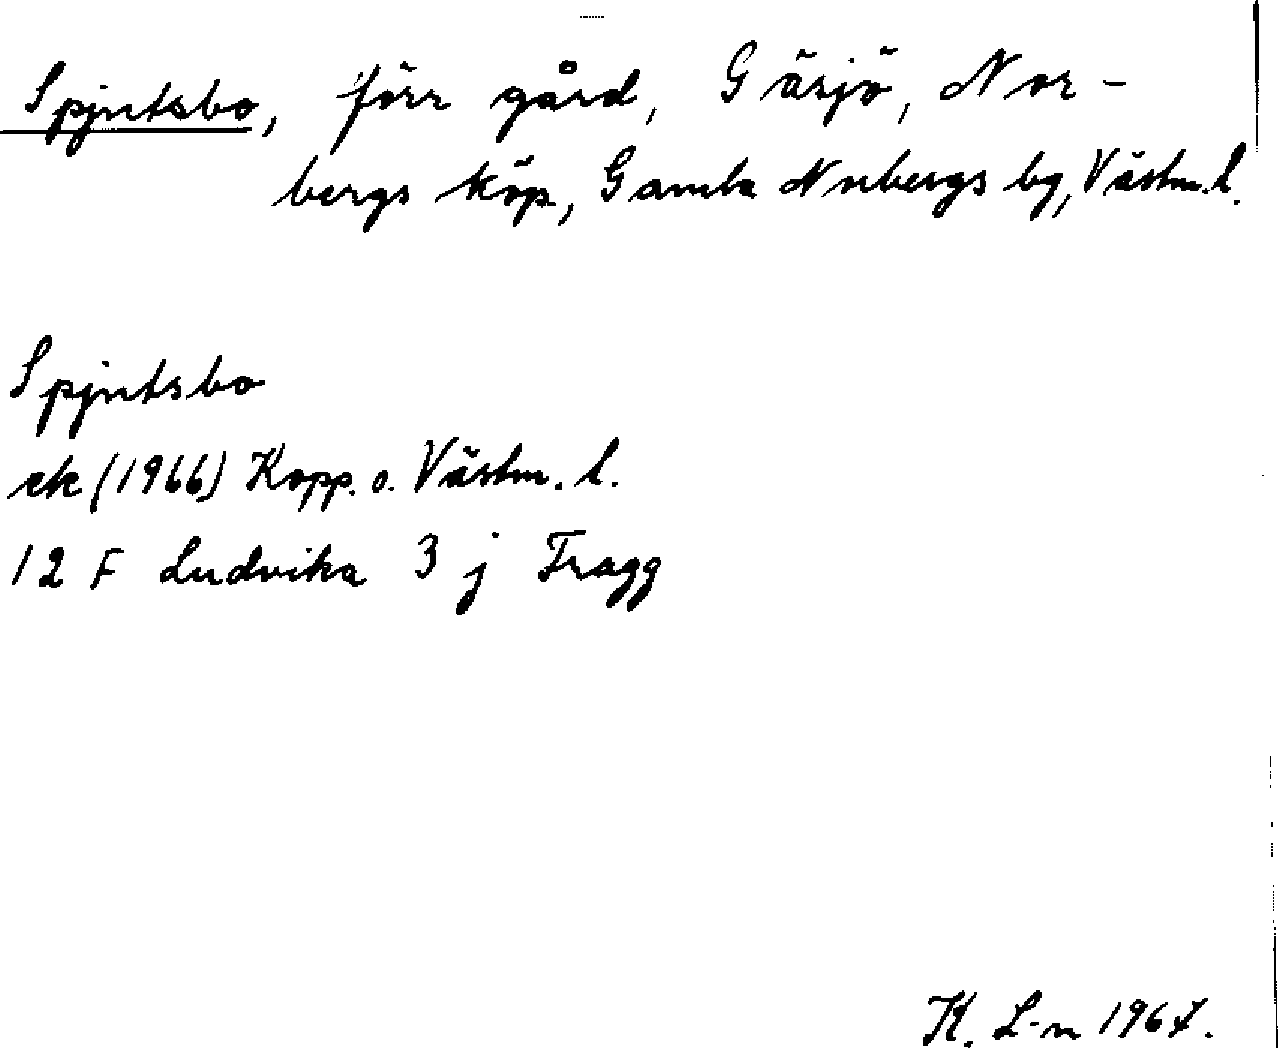 Spjutsbo, förr gård, Gäsjö, Nor-
bergs köp, Gamla Norbergs bg, Västm. l.
Spjutsbo
ek (1966) Kopp. o. Västm. l.
12 F Ludvika 3 j Fragg
K. L-n 1967.